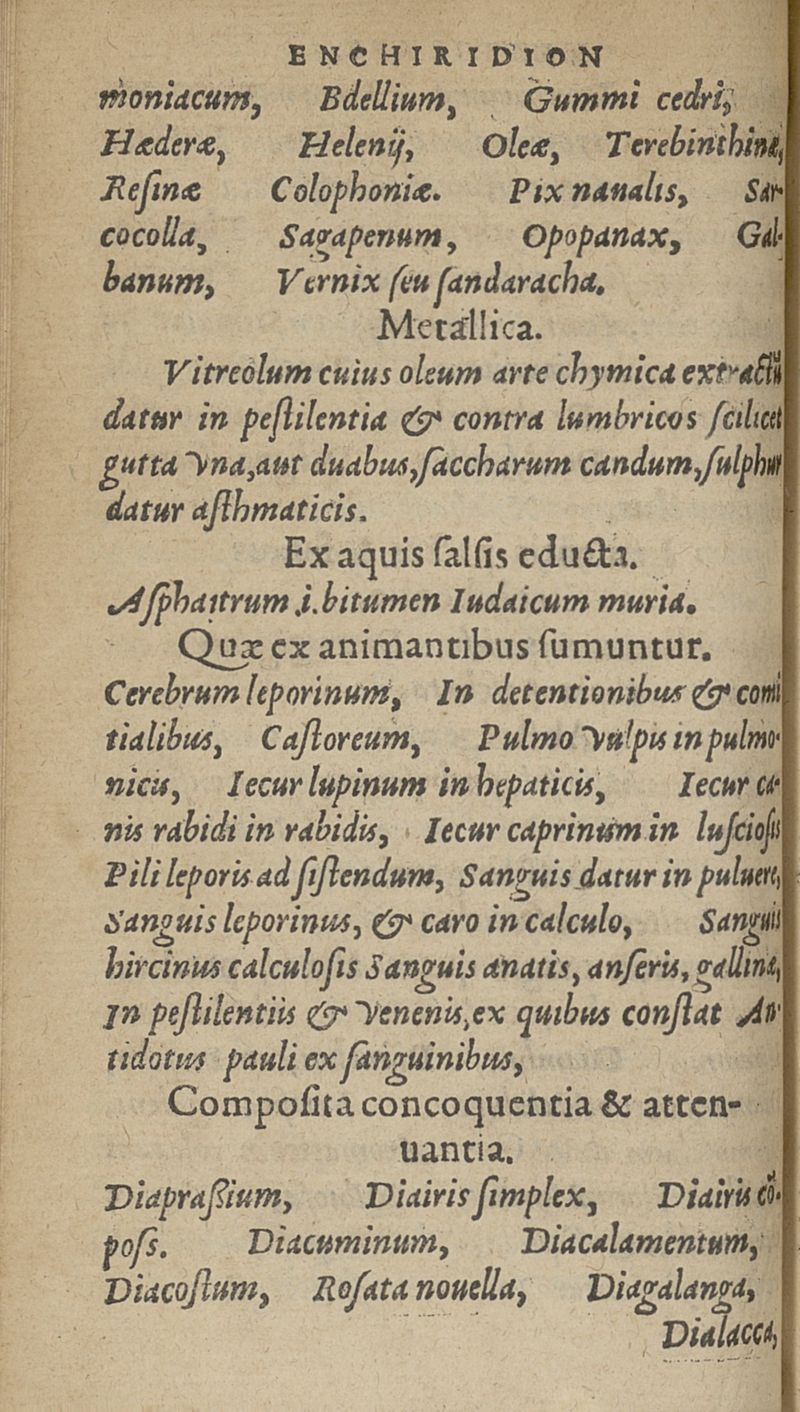 ENCHIRIDION
moniacum, Bdellium, Gummi cedri,
Hæderæ, Helenij, Oleæ, Terebinthinæ,
Reſinæ Colophoniæ. Pix naualis, Sar-
cocolla, Sagapenum, Opopanax, Gal-
banum, Vernix ſeu ſandaracha.
Metallica.
Vitreolum cuius oleum arte chymica extractũ
datur in peſtilentia & contra lumbricos ſcilicet
gutta vna, aut duabus, ſaccharum candum, ſulphur
datur aſthmaticis.
Ex aquis ſalſis educta.
Aſphaitrum .i. bitumen Iudaicum muria.
Quæ ex animantibus ſumuntur.
Cerebrum leporinum, In detentionibus & comi
tialibus, Caſtoreum, Pulmo vulpis in pulmo-
nicis, Iecur lupinum in hepaticis, Iecur ca-
nis rabidi in rabidis, Iecur caprinum in luſcioſis
Pili leporis ad ſiſtendum, Sanguis datur in puluere,
Sanguis leporinus, & caro in calculo, Sanguis
hircinus calculoſis Sanguis anatis, anſeris, gallinæ,
In peſtilentiis & venenis, ex quibus conſtat An-
tidotus pauli ex ſanguinibus,
Compoſita concoquentia & atten-
uantia.
Diapraſsium, Diairis ſimplex, Diairis cõ-
poſs. Diacuminum, Diacalamentum,
Diacoſtum, Roſata nouella, Diagalanga,
Dialacca,